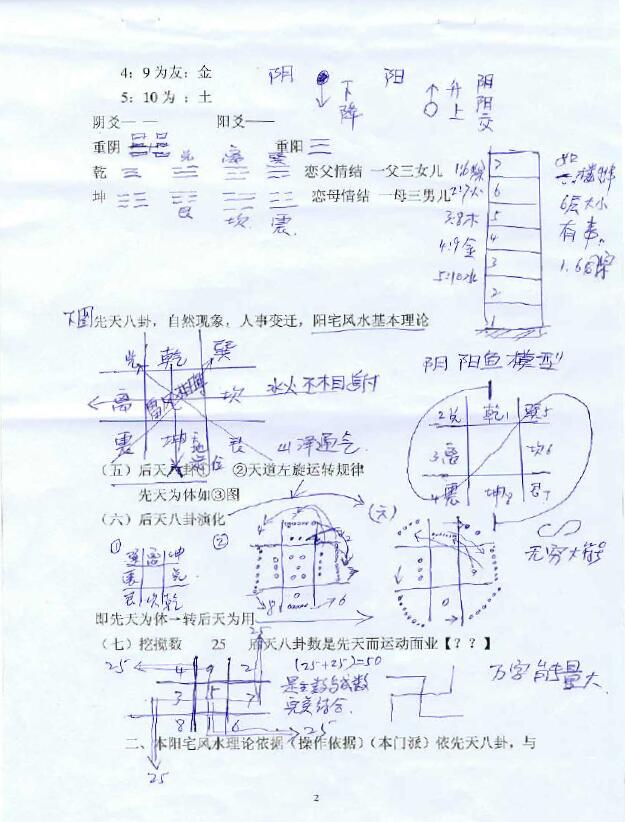 4：9为友：金
阴 阳
下降
升上
阴阳交
5：10为 ：土
阴爻— — 阳爻——
重阴 重阳
兑 离 震
乾 恋父情结 一父三女儿
坤 恋母情结 一母三男儿
艮 坎 震
2:7火
3:8木
4:9金
5:10水
7
6
5
4
3
2
1
6层大小
有事
下图先天八卦，自然现象，人事变迁，阳宅风水基本理论
兑 乾 巽
离 雷风相搏 坎
震 坤 艮
水火不相射
山泽通气
天地定位
阴阳鱼模型
2兑 乾1 巽5
3离 坎6
4震 坤8 艮7
（五）后天八卦① ②天道左旋运转规律
先天为体如③图
（六）后天八卦演化
① ② （六）
巽 离 坤
震 兑
艮 坎 乾
8 6
无穷大符号
即先天为体一转后天为用
（七）挖搅数 25 后天八卦数是先天而运动而业【？？】
25 25
4 9 2
3 5 7
8 1 6
25 25
(25+25)=50
是生数与成数
完美结合
万字能量大
二、本阳宅风水理论依据（操作依据）（本门派）依先天八卦，与
2